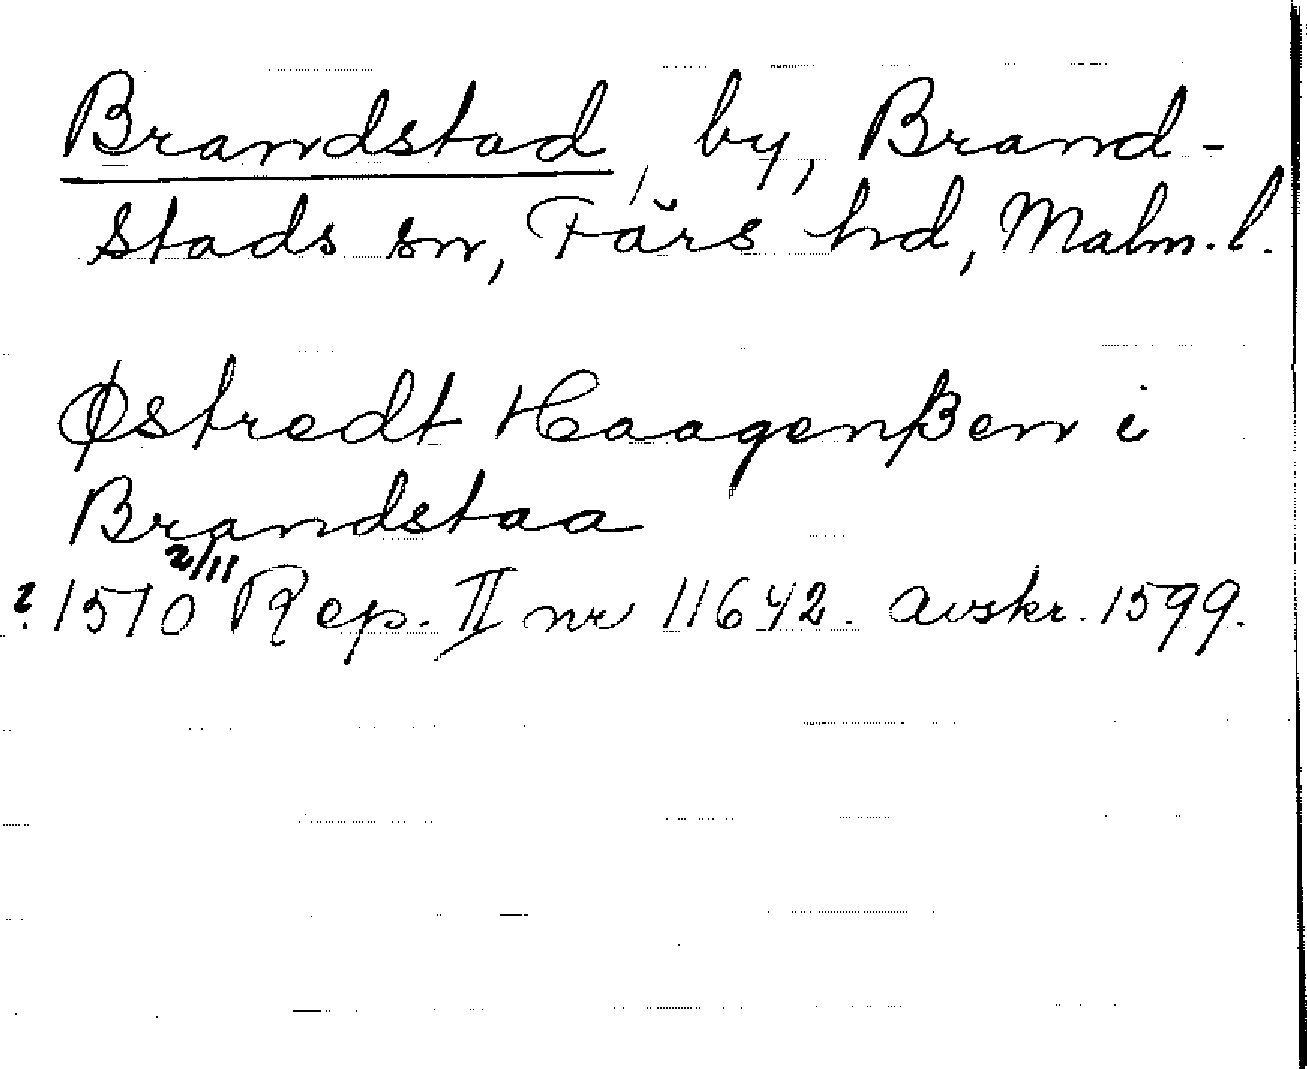 Brandstad, by, Brand-
stads sn, Färs hd, Malm. l.
Østredt Haagenßen i
Brandstaa
? 1510 2/11 Rep. II nr 11642. Avskr. 1599.